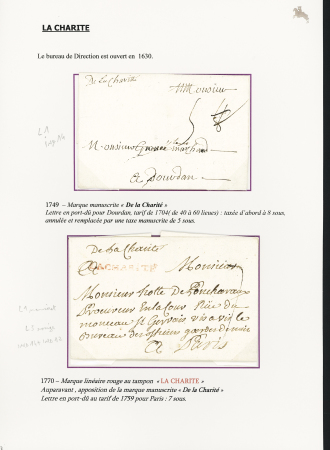 LA CHARITE
Le bureau de Direction est ouvert en 1630.
De La Charité
Monsieur
5
Monsieur
marchand
a Dourdan
1749 – Marque manuscrite « De la Charité »
Lettre en port-dû pour Dourdan, tarif de 1704( de 40 à 60 lieues) : taxée d'abord à 8 sous,
annulée et remplacée par une taxe manuscrite de 5 sous.
De La Charité
LACHARITE
A Monsieur
Monsieur
Procureur En la Cour Rüe du
monceau St Gervois vis a vis le
Bureau des
A Paris
1770 – Marque linéaire rouge au tampon « LA CHARITE »
Auparavant , apposition de la marque manuscrite « De la Charité »
Lettre en port-dû au tarif de 1759 pour Paris : 7 sous.